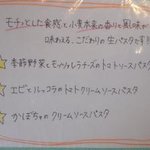 モチッとした食感と小麦本来の香りと風味が
味わえる、こだわりの生パスタです!!
季節野菜とモッツァレラチーズのトマトソースパスタ
エビとルッコラのトマトクリームソースパスタ
かぼちゃのクリームソースパスタ